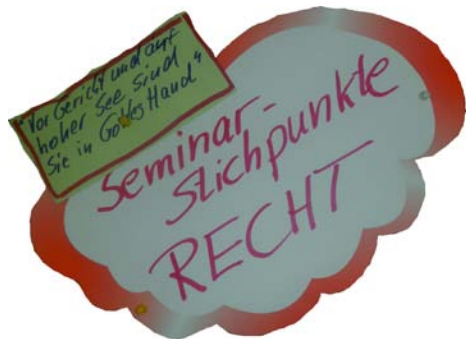 "Vor Gericht und auf
hoher See sind
Sie in Gottes Hand"
Seminar-
Stichpunkte
RECHT